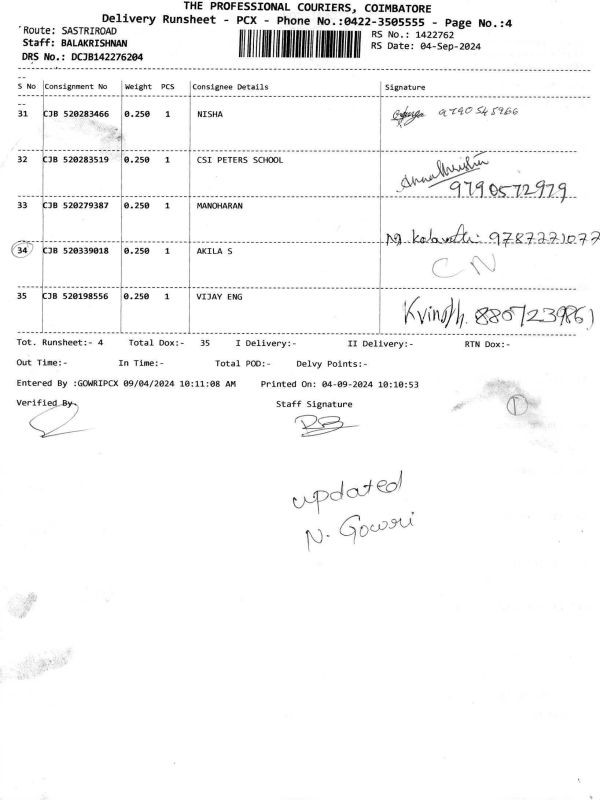 THE PROFESSIONAL COURIERS, COIMBATORE
Delivery Runsheet - PCX - Phone No.:0422-3505555 - Page No.:4
Route: SASTRIROAD
Staff: BALAKRISHNAN
DRS No.: DCJB142276204
RS No.: 1422762
RS Date: 04-Sep-2024
S No Consignment No Weight PCS Consignee Details Signature
31 CJB 520283466 0.250 1 NISHA 9790545966
32 CJB 520283519 0.250 1 CSI PETERS SCHOOL
9790572979
33 CJB 520279387 0.250 1 MANOHARAN
9787271077
34 CJB 520339018 0.250 1 AKILA S
CN
35 CJB 520198556 0.250 1 VIJAY ENG
Kvinoth. 8807239861
Tot. Runsheet:- 4 Total Dox:- 35 I Delivery:- II Delivery:- RTN Dox:-
Out Time:- In Time:- Total POD:- Delvy Points:-
Entered By :GOWRIPCX 09/04/2024 10:11:08 AM Printed On: 04-09-2024 10:10:53
Verified By. Staff Signature
1
updated
N. Gowri